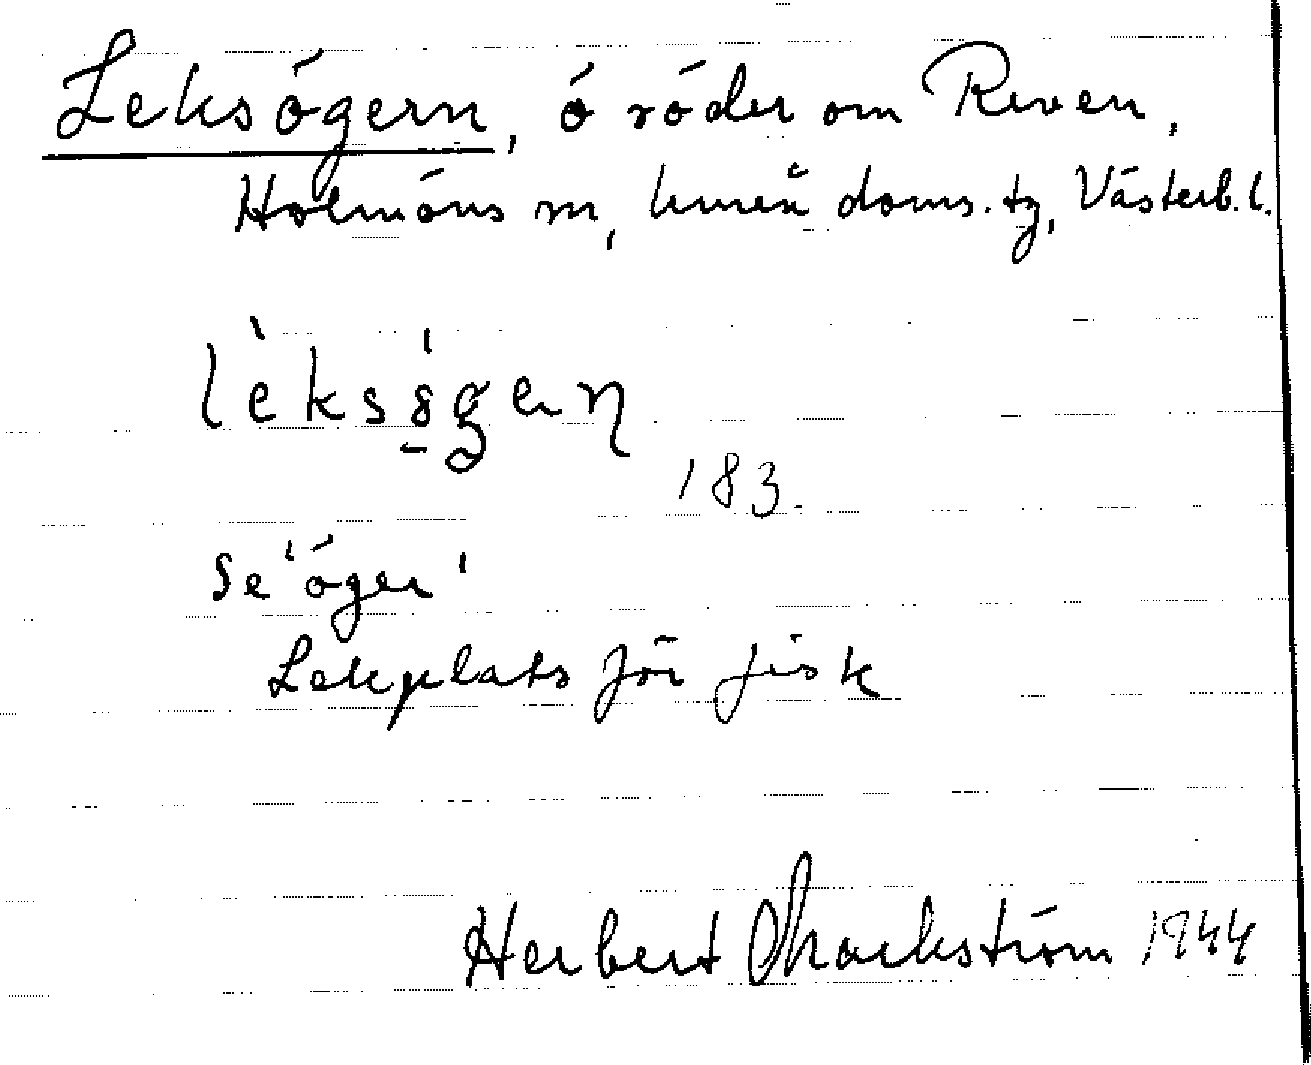 Leksögern, ö söder om Reven,
Holmöns sn, Umeå doms. tg, Västerb. l.
183.
Se 'öger'
Lekplats för fisk
Herbert Markström 1944